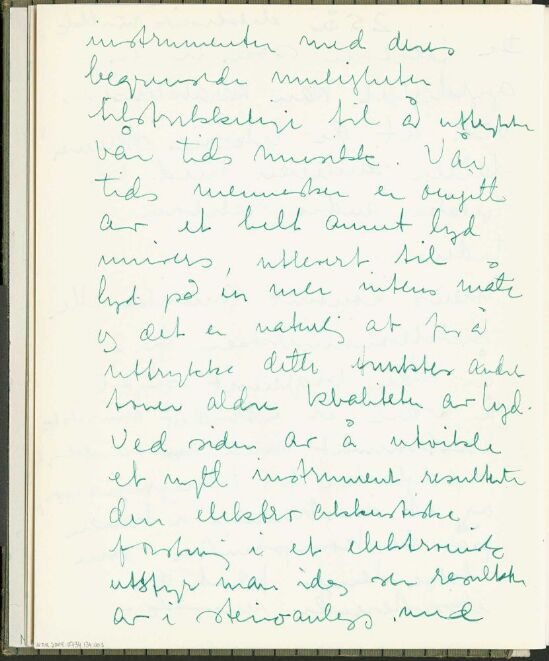 instrumenter med deres
begrensede muligheter
tilstrekkelige til å uttrykke
vår tids musikk. Vår
tids mennesker er omgitt
av et helt annet lyd
univers, utsessert til
lyd på en mer intens måte
og det er naturlig at for å
uttrykke dette andre
toner aldre kvaliteter av lyd.
Ved siden av å utvikle
et nytt instrument resulterte
den elektro akustiske
forskning i et elektronisk
utstyr man idag ser resultater
av i stereoanlegg, med